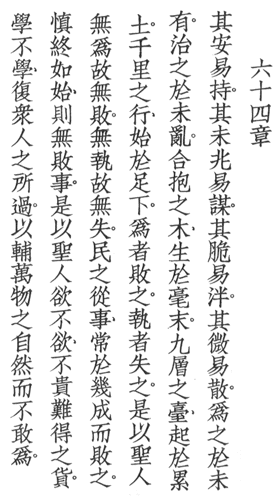 六十四章
其安易持。其未兆易謀。其脆易泮。其微易散。爲之於未
有。治之於未亂。合抱之木、生於毫末。九層之臺、起於累
土。千里之行、始於足下。爲者敗之。執者失之。是以聖人
無爲故無敗。無執故無失。民之從事、常於幾成而敗之。
慎終如始、則無敗事。是以聖人欲不欲、不貴難得之貨。
學不學、復衆人之所過。以輔萬物之自然而不敢爲。